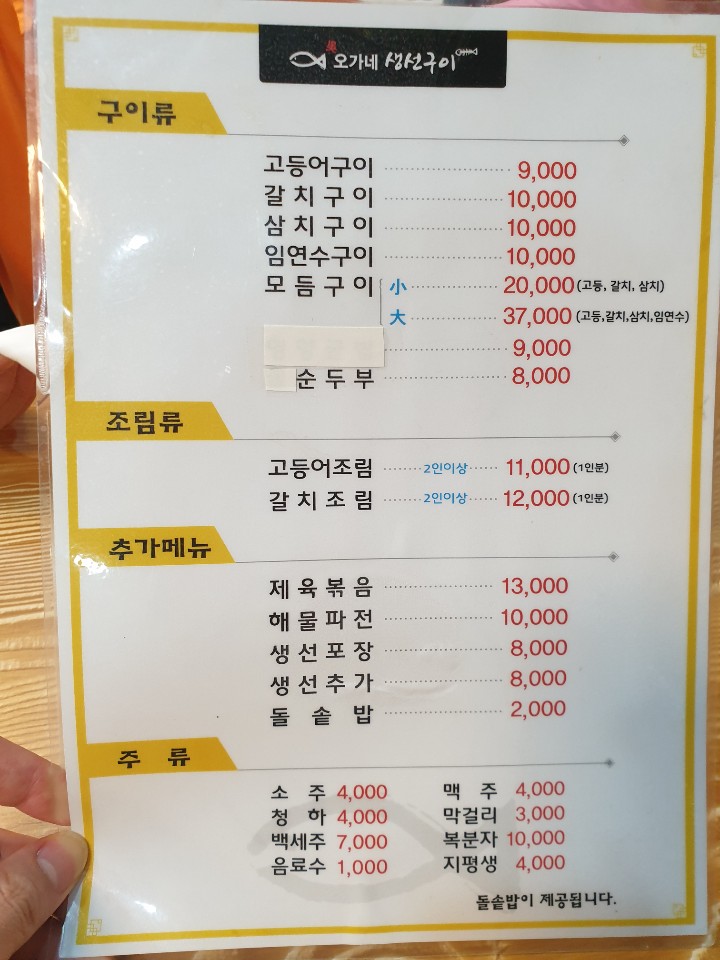 오가네 생선구이
구이류
고등어구이 9,000
갈치구이 10,000
삼치구이 10,000
임연수구이 10,000
모듬구이 小 20,000 (고등, 갈치, 삼치)
大 37,000 (고등,갈치,삼치,임연수)
9,000
순두부 8,000
조림류
고등어조림 2인이상 11,000 (1인분)
갈치조림 2인이상 12,000 (1인분)
추가메뉴
제육볶음 13,000
해물파전 10,000
생선포장 8,000
생선추가 8,000
돌솥밥 2,000
주류
소주 4,000 맥주 4,000
청하 4,000 막걸리 3,000
백세주 7,000 복분자 10,000
음료수 1,000 지평생 4,000
돌솥밥이 제공됩니다.